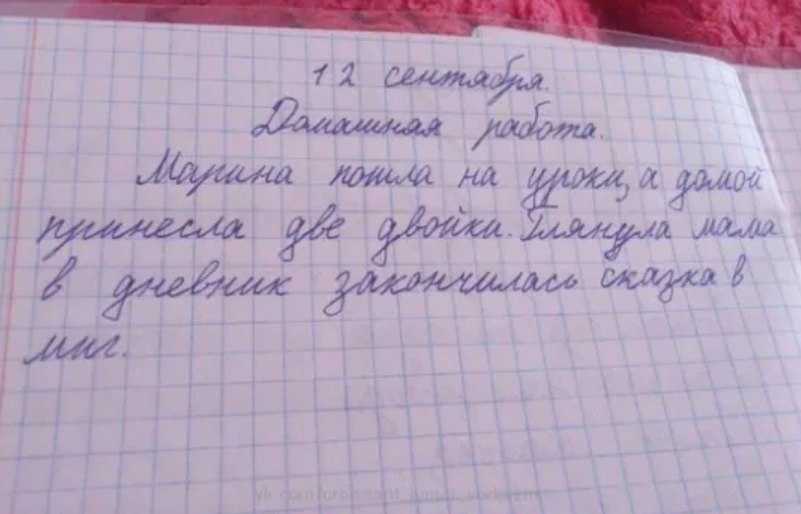 12 сентября.
Домашная работа.
Марина пошла на уроки, а домой
принесла две двойки. Глянула мама
в дневник закончилась сказка в
миг.